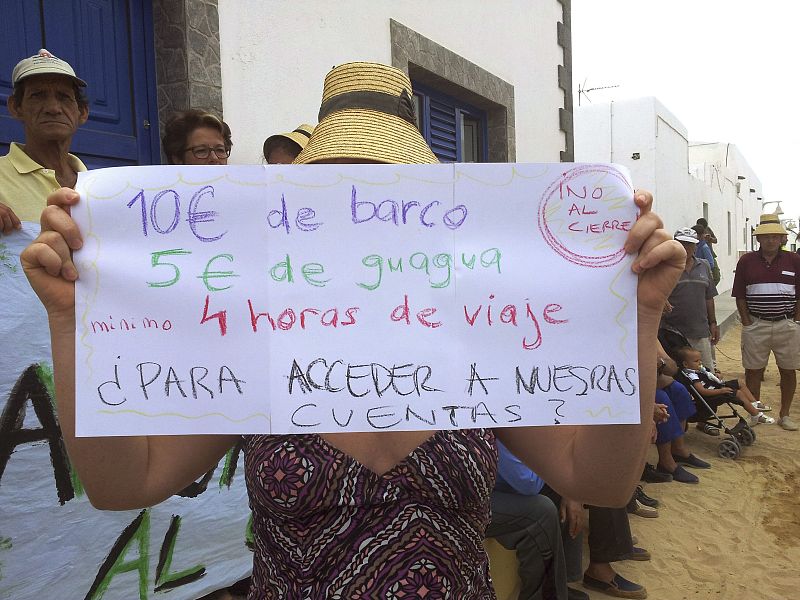 10€ de barco
¡NO
AL
CIERRE!
5€ de guagua
minimo 4 horas de viaje
¿PARA ACCEDER A NUESRAS
CUENTAS?
A
AL